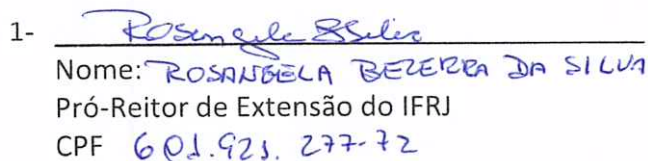 1- Rosangela BSilva
Nome: ROSANGELA BEZERRA DA SILVA
Pró-Reitor de Extensão do IFRJ
CPF 601.921.277-72